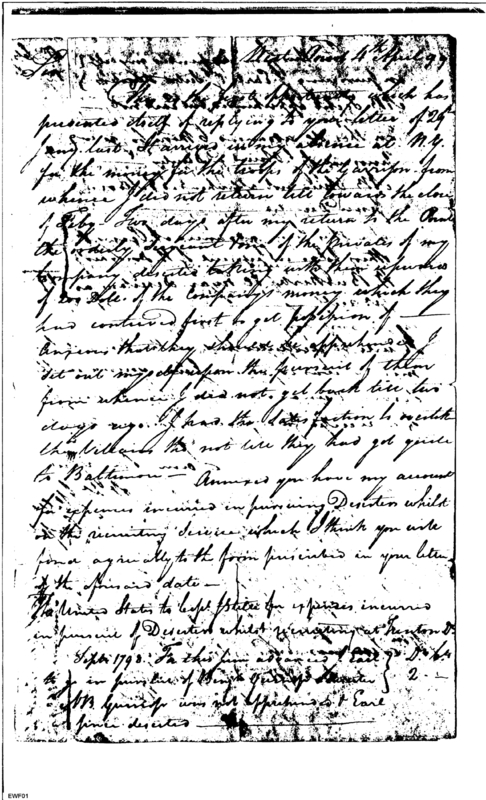 Sir West Point 4th April 99
This is the first opportunity which has
presented itself of replying to your letter of 29th
Jany last. It arrived in my absence at N.Y.
for the money for the troops of the Garrison from
whence I did not return till towards the close
of Feby. Two days after my return to the Point
the orderly of the Privates of my
Company deserted taking with them upwards
of 200 Dlls. of the Company's money, which they
had contrived first to get possession of —
Anxious that they should be apprehended I
set out myself upon the pursuit of them
from whence I did not get back till two
days ago. I had the satisfaction to overtake
the Villains tho not till they had got quite
to Baltimore — Annexed you have my account
for expences incurred in pursuing Deserters whilst
on the recruiting service which I think you will
find agreeably to the form presented in your letter
of the aforesaid date —
The United States to Capt. for expences incurred
in pursuit of Deserters whilst recruiting at Trenton Dr.
Sept. 1798. For this sum advanced Earl Ds Cts
to go in pursuit of Deserter } 2 —
NB was not apprehended & Earl
is since deserted —
EWF01